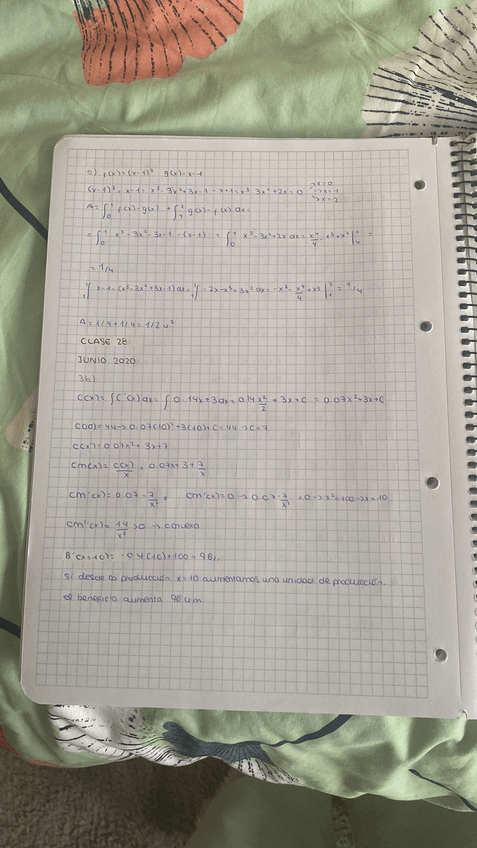 c) f(x)=(x-1)³ g(x)=x-1
(x-1)³=x-1= x³-3x²+3x-1-x+1=x³-3x²+2x=0 →x=0 →x=1 →x=2
A=∫₀¹ f(x)-g(x) + ∫₁² g(x)-f(x) dx=
=∫₀¹ x³-3x²+3x-1-(x-1) = ∫₀¹ x³-3x²+2x dx= x⁴/4 - x³+x² =
= 1/4
x-1-(x³-3x²+3x-1)dx= -2x-x³+3x² dx= -x²-x⁴/4+x³ = 1/4
A=1/4+1/4=1/2 u²
CLASE 28
JUNIO 2020
3b)
C(x)=∫C'(x)dx=∫0.14x+3dx=0.14 x²/2 +3x+C = 0.07x²+3x+C
C(10)=44→0.07(10)²+3(10)+C=44→C=7
C(x)=0.07x²+3x+7
Cm(x)= C(x)/x = 0.07x+3+7/x
Cm'(x)=0.07-7/x² Cm'(x)=0→0.07-7/x²=0→x²=100→x=10
Cm''(x)= 14/x³ >0 → convexa
B'(x=10)=-0.4(10)+100=96,
Si desde la producción x=10 aumentamos una unidad de producción,
el beneficio aumenta 96 um